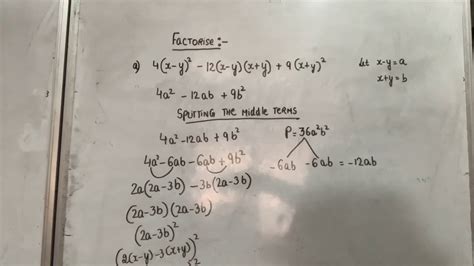 FACTORISE :-
a) 4(x-y)² - 12(x-y)(x+y) + 9(x+y)²
let x-y = a
x+y = b
4a² - 12ab + 9b²
SPLITTING THE MIDDLE TERMS
4a² - 12ab + 9b²
P = 36a²b²
4a² - 6ab - 6ab + 9b²
-6ab -6ab = -12ab
2a(2a-3b) - 3b(2a-3b)
(2a-3b)(2a-3b)
(2a-3b)²
(2(x-y)-3(x+y))²